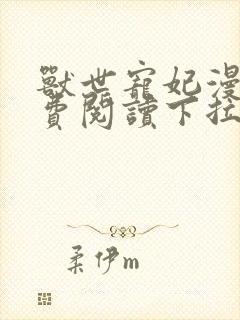 獸世寵妃漫
費閱讀下拉
柔伊m